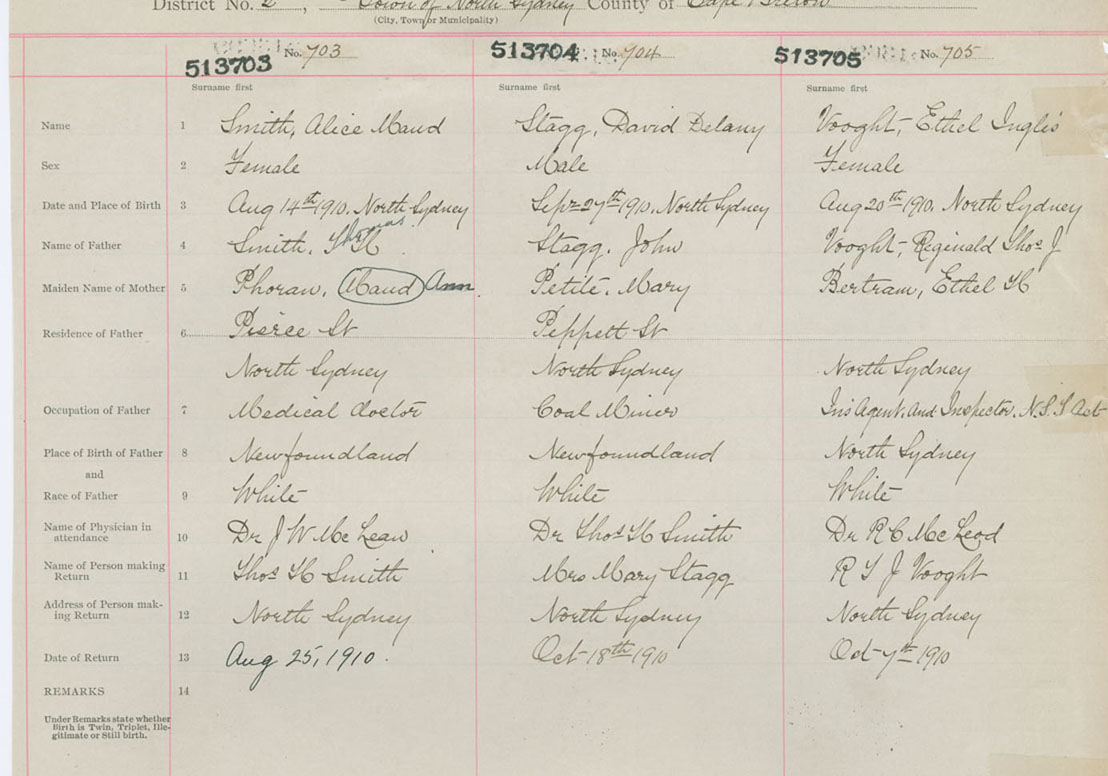 District No. 2, Town of North Sydney County of Cape Breton
(City, Town or Municipality)
513703 No. 703 513704 No. 704 513705 No. 705
Surname first Surname first Surname first
Name 1 Smith, Alice Maud Stagg, David Delany Vooght, Ethel Inglis
Sex 2 Female Male Female
Date and Place of Birth 3 Aug 14th 1910. North Sydney Sept 27th 1910. North Sydney Aug 20th 1910. North Sydney
Thomas
Name of Father 4 Smith, T H Stagg, John Vooght, Reginald Thos J
Maiden Name of Mother 5 Phoran, Maud Ann Petite, Mary Bertram, Ethel H
Residence of Father 6 Pierce St Peppett St
North Sydney North Sydney North Sydney
Occupation of Father 7 Medical doctor Coal Miner Ins Agent. and Inspector. N.S.T Act
Place of Birth of Father 8 Newfoundland Newfoundland North Sydney
and
Race of Father 9 White White White
Name of Physician in
attendance 10 Dr J W McLean Dr Thos H Smith Dr R C McLeod
Name of Person making
Return 11 Thos H Smith Mrs Mary Stagg R T J Vooght
Address of Person mak-
ing Return 12 North Sydney North Sydney North Sydney
Date of Return 13 Aug 25, 1910. Oct 18th 1910 Oct 7th 1910
REMARKS 14
Under Remarks state whether
Birth is Twin, Triplet, Ille-
gitimate or Still birth.